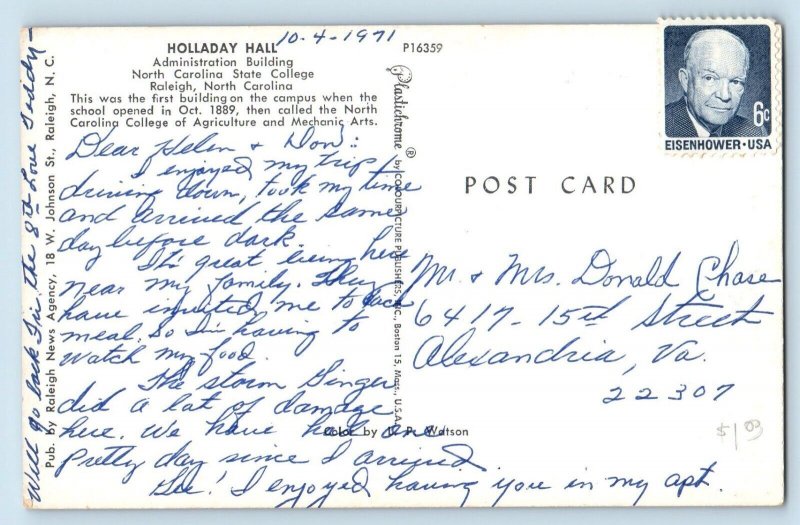 10-4-1971
HOLLADAY HALL
Administration Building
North Carolina State College
Raleigh, North Carolina
This was the first building on the campus when the
school opened in Oct. 1889, then called the North
Carolina College of Agriculture and Mechanic Arts.
P16359
Dear Helen & Don:
I enjoyed my trip
driving down, took my time
and arrived the same
day before dark.
It's great being here
near my family. They
have invited me to each
meal. So I'm having to
watch my food.
The storm Ginger
did a lot of damage
here. We have had one
pretty day since I arrived
Gee! I enjoyed having you in my apt.
Will go back Fri. the 8th Love Teddy-
Pub. by Raleigh News Agency, 18 W. Johnson St., Raleigh, N. C.
Plastichrome ® by COLOURPICTURE PUBLISHERS, INC., Boston 15, Mass., U.S.A.
Color by P. Watson
POST CARD
6c
EISENHOWER·USA
Mr. & Mrs. Donald Chase
6417- 15th Street
Alexandria, Va.
22307
$1.00